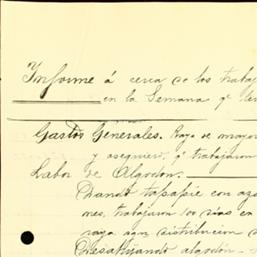 Informe á cerca de los trabaj
en la Semana q' ter
Gastos Generales. Raya de mayor
y aseguier. q' trabajaron
Labor de Algodon.
Dando tapapie con aza
mes, trabajaron los días en
raya aun distribucion
Desahijando algodón